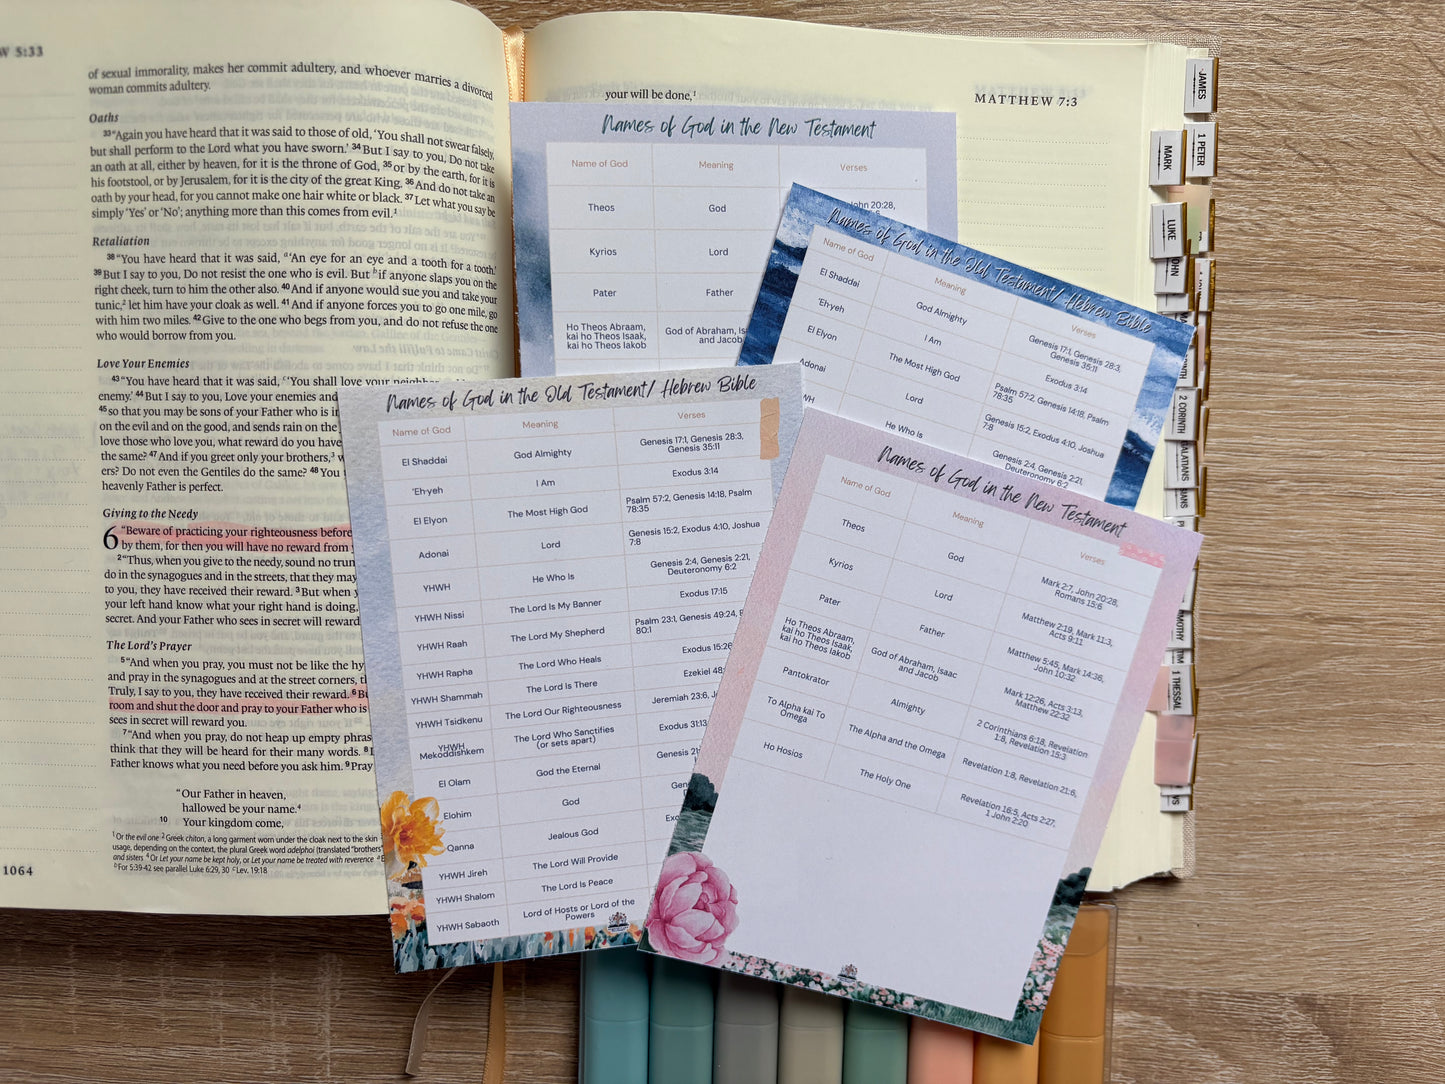 W 5:33
of sexual immorality, makes her commit adultery, and whoever marries a divorced
woman commits adultery.
Oaths
33 “Again you have heard that it was said to those of old, ‘You shall not swear falsely,
but shall perform to the Lord what you have sworn.’ 34 But I say to you, Do not take
an oath at all, either by heaven, for it is the throne of God, 35 or by the earth, for it is
his footstool, or by Jerusalem, for it is the city of the great King. 36 And do not take an
oath by your head, for you cannot make one hair white or black. 37 Let what you say be
simply ‘Yes’ or ‘No’; anything more than this comes from evil.1
Retaliation
38 “You have heard that it was said, a‘An eye for an eye and a tooth for a tooth.’
39 But I say to you, Do not resist the one who is evil. But b if anyone slaps you on the
right cheek, turn to him the other also. 40 And if anyone would sue you and take your
tunic,2 let him have your cloak as well. 41 And if anyone forces you to go one mile, go
with him two miles. 42 Give to the one who begs from you, and do not refuse the one
who would borrow from you.
Love Your Enemies
43 “You have heard that it was said, c‘You shall love your neighbor
enemy.’ 44 But I say to you, Love your enemies and
45 so that you may be sons of your Father who is in
on the evil and on the good, and sends rain on the
love those who love you, what reward do you have
the same? 47 And if you greet only your brothers,3 w
ers? Do not even the Gentiles do the same? 48 You
heavenly Father is perfect.
Giving to the Needy
6 “Beware of practicing your righteousness before
by them, for then you will have no reward from
2 “Thus, when you give to the needy, sound no trum
do in the synagogues and in the streets, that they may
to you, they have received their reward. 3 But when y
your left hand know what your right hand is doing,
secret. And your Father who sees in secret will reward
The Lord’s Prayer
5 “And when you pray, you must not be like the hy
and pray in the synagogues and at the street corners, t
Truly, I say to you, they have received their reward. 6 Bu
room and shut the door and pray to your Father who is
sees in secret will reward you.
7 “And when you pray, do not heap up empty phras
think that they will be heard for their many words. 8
Father knows what you need before you ask him. 9 Pray
“Our Father in heaven,
hallowed be your name.4
10 Your kingdom come,
1 Or the evil one 2 Greek chiton, a long garment worn under the cloak next to the skin
usage, depending on the context, the plural Greek word adelphoi (translated “brothers”
and sisters 4 Or Let your name be kept holy, or Let your name be treated with reverence
b For 5:39-42 see parallel Luke 6:29, 30 c Lev. 19:18
1064
your will be done,1
MATTHEW 7:3
Names of God in the New Testament
Name of God Meaning Verses
Theos God John 20:28,
Kyrios Lord
Pater Father
Ho Theos Abraam,
kai ho Theos Isaak,
kai ho Theos Iakob
God of Abraham, Is
and Jacob
Names of God in the Old Testament/ Hebrew Bible
Name of God Meaning Verses
El Shaddai God Almighty Genesis 17:1, Genesis 28:3,
Genesis 35:11
'Eh-yeh I Am Exodus 3:14
El Elyon The Most High God Psalm 57:2, Genesis 14:18, Psalm
78:35
Adonai Lord Genesis 15:2, Exodus 4:10, Joshua
7:8
WH He Who Is Genesis 2:4, Genesis 2:21,
Deuteronomy 6:2
Names of God in the Old Testament/ Hebrew Bible
Name of God Meaning Verses
El Shaddai God Almighty Genesis 17:1, Genesis 28:3,
Genesis 35:11
'Eh-yeh I Am Exodus 3:14
El Elyon The Most High God Psalm 57:2, Genesis 14:18, Psalm
78:35
Adonai Lord Genesis 15:2, Exodus 4:10, Joshua
7:8
YHWH He Who Is Genesis 2:4, Genesis 2:21,
Deuteronomy 6:2
YHWH Nissi The Lord Is My Banner Exodus 17:15
YHWH Raah The Lord My Shepherd Psalm 23:1, Genesis 49:24,
80:1
YHWH Rapha The Lord Who Heals Exodus 15:26
YHWH Shammah The Lord Is There Ezekiel 48:
YHWH Tsidkenu The Lord Our Righteousness Jeremiah 23:6,
YHWH
Mekoddishkem
The Lord Who Sanctifies
(or sets apart)
Exodus 31:13
El Olam God the Eternal Genesis 21:
Elohim God Gen
Qanna Jealous God Exo
YHWH Jireh The Lord Will Provide
YHWH Shalom The Lord Is Peace
YHWH Sabaoth Lord of Hosts or Lord of the
Powers
Names of God in the New Testament
Name of God Meaning Verses
Theos God Mark 2:7, John 20:28,
Romans 15:6
Kyrios Lord Matthew 2:19, Mark 11:3,
Acts 9:11
Pater Father Matthew 5:45, Mark 14:36,
John 10:32
Ho Theos Abraam,
kai ho Theos Isaak,
kai ho Theos Iakob
God of Abraham, Isaac
and Jacob
Mark 12:26, Acts 3:13,
Matthew 22:32
Pantokrator Almighty 2 Corinthians 6:18, Revelation
1:8, Revelation 15:3
To Alpha kai To
Omega
The Alpha and the Omega Revelation 1:8, Revelation 21:6,
Ho Hosios The Holy One Revelation 16:5, Acts 2:27,
1 John 2:20
JAMES
1 PETER
MARK
LUKE
OHN
INTH
2 CORINTH
ALATIANS
SIANS
MOTHY
1 THESSAL